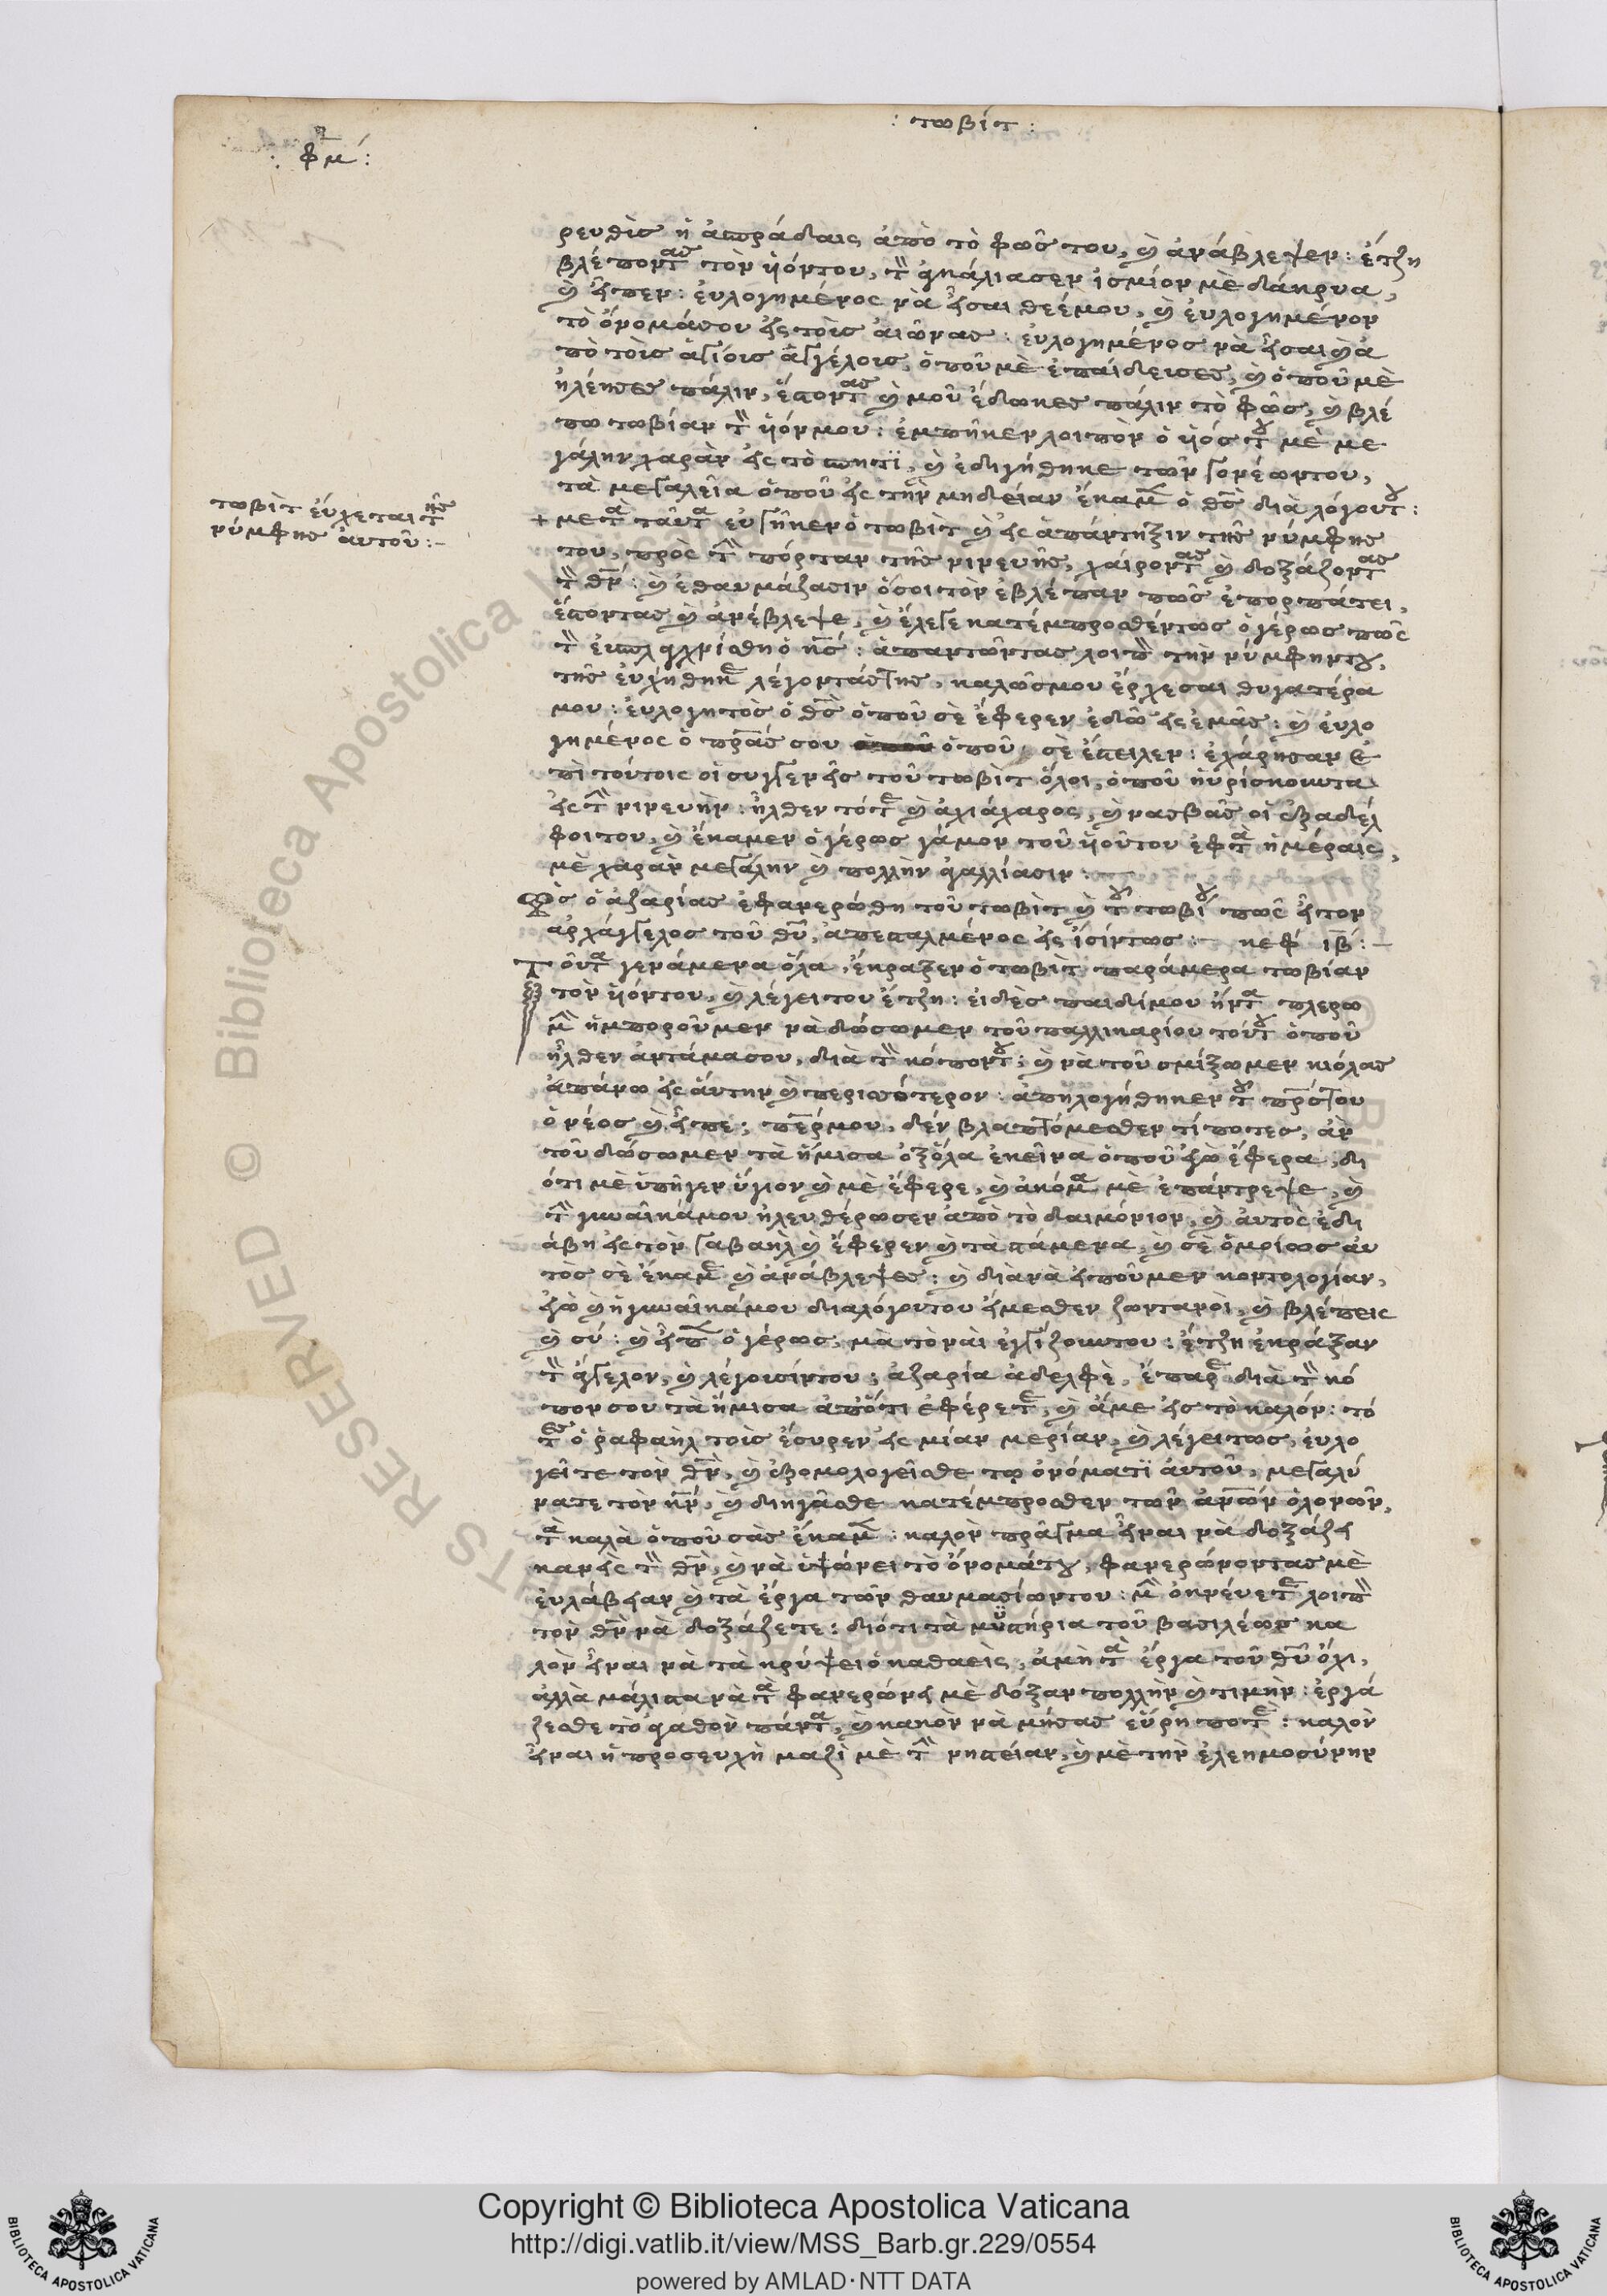 : τωβίτ :
: φμ́ :
ρευθὶσ ἡ ἀσπράδαις ἀπὸ τὸ φῶσ του, καὶ ἀνάβλεψεν : ἔτζη
βλέποντας τὸν ὑιόντου, τὸν ἀγκάλιασεν ἰσμίον μὲ δάκρυα,
καὶ εἶπεν : ἐυλογημένος νὰ εἶσαι θεέμου, καὶ ἐυλογημένον
τὸ ὄνομάσου εἰς τοὶσ ἀιῶνασ : ἐυλογημένοσ νὰ εἶσαι καὶ ἀ
πὸ τοὶσ ἁγίοισ ἀγγέλοισ, ὁποῦ μὲ ἐπαίδευσεσ, καὶ ὁποῦ μὲ
ἠλέησεσ πάλιν, ἔστοντας καὶ μοῦ ἔδωκεσ πάλιν τὸ φῶσ, καὶ βλέ
πω τωβίαν τὸν ὑιόν μου : ἐμπῆκεν λοιπὸν ὁ ὑιόσ του μὲ με
γάλην χαρὰν εἰς τὸ σπητϊ, καὶ ἐδιγήθηκε τῶν γονέωντου,
τὰ μεγαλεῖα ὁποῦ εἰς τὴν μηδείαν ἔκαμεν ὁ θσ διὰ λόγουτου :
τωβὶτ ἐύχεται τῆσ
νύμφησ ἀυτοῦ :-
+ μετὰ ταῦτα ἐυγῆκεν ὁ τωβὶτ καὶ εἰς ἀπάντηξιν τῆσ νύμφησ
του, πρὸς τὴν πόρταν τῆσ νινευῆσ, χαίροντας καὶ δοξάζοντας
τὸν θν : καὶ ἐθαυμάζασιν ὅσοι τὸν ἐβλέπαν πῶσ ἐπορπάτει,
ἔστοντασ καὶ ἀνέβλεψε, καὶ ἔλεγε κατέμπροσθέντωσ ὁ γέρωσ πῶς
τὸν ὁ κσ : ἀπαντῶντασ λοιπὸν τὴν νύμφηντου,
τῆσ ἐυχήθηκε λέγοντάστησ, καλῶσμου ἔρχεσαι θυγατέρα
μου : ἐυλογητὸσ ὁ θσ ὁποῦ σὲ ἔφερεν ἐδῶ εἰς ἐμᾶσ : καὶ ἐυλο
γημένος ὁ πρασ σου ὁποῦ σὲ ἔστειλεν : ἐχάρησαν ἐ
πὶ τούτοις οἱ συγγενεῖσ τοῦ τωβὶτ ὅλοι, ὁποῦ ἡυρίσκουντα
εἰς τὴν νινευὴν : ἦλθεν τότε καὶ ἀχιάχαρος, καὶ νασβᾶσ οἱ ἐξαδέλ
φοι του, καὶ ἔκαμεν ὁ γέρωσ γάμον τοῦ ὑιοῦτου ἐφτὰ ἡμέραις,
μὲ χαρὰν μεγάλην καὶ πολλὴν ἀγαλλίασιν :
Πῶσ ὁ ἀζαρίασ ἐφανερώθη τοῦ τωβὶτ καὶ τοῦ τωβίου πῶς εἶτον
ἀρχάγγελοσ τοῦ θυ, ἀπεσταλμένος εἰς ἰσίντωσ :- κεφ ιβ́ :-
Τοῦτα γενάμενα ὅλα, ἔκραξεν ὁ τωβὶτ παράμερα τωβίαν
τὸν ὑιόντου, καὶ λέγει του ἔτζη : ἐιδὲσ παιδίμου ἤντα πλερω
μὴν ἠμποροῦμεν νὰ δώσωμεν τοῦ παλλικαρίου τούτου ὁποῦ
ἦλθεν ἀντάμασου, διὰ τὸν κόποντου ; καὶ νὰ τοῦ σμίξωμεν κιόλασ
ἀπάνω εἰς ἄυτην καὶ περισσότερον : ἀπηλογήθηκεν τοῦ πρσ του
ὁ νέος καὶ εἶπε ; περμου, δέν βλαπτόμεσθεν τίποτεσ, ἀν
τοῦ δώσωμεν τὰ ἥμισα ὀξόλα ἐκεῖνα ὁποῦ ἐγὼ ἔφερα, δι
ότι μὲ ὑπῆγεν ὕγιον καὶ μὲ ἔφερε, καὶ ἀκόμα μὲ ἐπάντρεψε, καὶ
τὴν γυναῖκάμου ἠλευθέρωσεν ἀπὸ τὸ δαιμόνιον, καὶ ἀυτὸς ἐδι
άβη εἰς τὸν γαβαηλ καὶ ἔφερεν καὶ τὰ στάμενα, καὶ σὲ ὁμοίωσ ἀυ
τὸσ σὲ ἔκαμε καὶ ἀνάβλεψεσ : καὶ διὰ νὰ εἰποῦμεν κοντολογίαν,
ἐγὼ καὶ ἡ γυναῖκάμου διαλόγουτου εἴμεσθεν ζωντανοὶ, καὶ βλέπεις
καὶ σύ : καὶ εἶπεν ὁ γέρωσ, μὰ τὸ ναὶ ἐγγίζουντου : ἔτζη ἐκράξαν
τὸν ἄγγελον, καὶ λέγουσίντου ; ἀζαρία ἀδελφὲ, ἔπαρε διὰ τὸν κό
πον σου τὰ ἥμισα ἀπὄτι ἐφέρετε, καὶ ἄμε εἰσ τὸ καλόν : τό
τεσ ὁ ῥαφαὴλ τοὶσ ἔσυρεν εἰς μίαν μερίαν, καὶ λέγει τωσ, ἐυλο
γεῖτε τὸν θν, καὶ ἐξομολογεῖσθε τῳ ὀνόματϊ ἀυτοῦ, μεγαλύ
νατε τὸν κν, καὶ διηγᾶσθε κατέμπροσθεν τῶν ἀνων ὁλονῶν,
τὰ καλὰ ὁποῦ σὰσ ἔκαμεν : καλὸν πρᾶγμα εἶναι νὰ δοξάζει
κανεὶς τὸν θν, καὶ νὰ ὑψώνει τὸ ὄνομάτου, φανερώνοντασ μὲ
ἐυλάβειαν καὶ τὰ ἔργα τῶν θαυμασίωντου : μὴν ὀκνένετε λοιπὸν
τὸν θν νὰ δοξάζετε : διότι τὰ μϋστήρια τοῦ βασιλέωσ κα
λὸν εἶναι νὰ τὰ κρύψει ὁ καθαεὶς, ἀμὴ τὰ ἔργα τοῦ θυ ὄχι,
ἀλλὰ μάλιστα νὰ τὰ φανερώνει μὲ δόξαν πολλὴν καὶ τιμὴν : ἐργά
ζεσθε τὸ ἀγαθὸν πάντα, καὶ κακὸν νὰ μήσασ εὕρη ποτὲ : καλὸν
εἶναι ἡ προσευχὴ μαζὶ μὲ τὴν νηστείαν, καὶ μὲ τὴν ἐλεημοσύνην
Copyright © Biblioteca Apostolica Vaticana
http://digi.vatlib.it/view/MSS_Barb.gr.229/0554
powered by AMLAD·NTT DATA